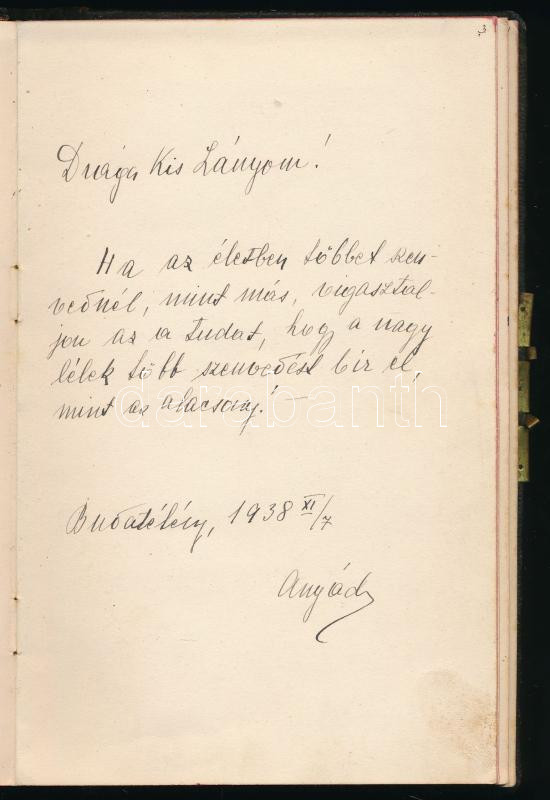 3
Drága Kis Lányom!
Ha az életben többet szen-
vednél, mint más, vigasztal-
jon az a tudat, hogy a nagy
lélek több szenvedést bír el,
darabanth
mint az alacsony! —
Budatétény, 1938 XI/7
Anyád